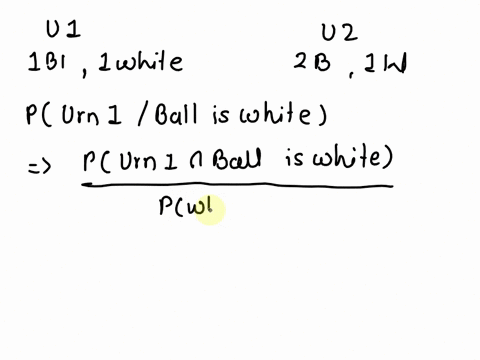 U1 U2
1Bl , 1white 2B , 1W
P( Urn 1 / Ball is white)
=> P( Urn 1 ∩ Ball is white)
P(wl